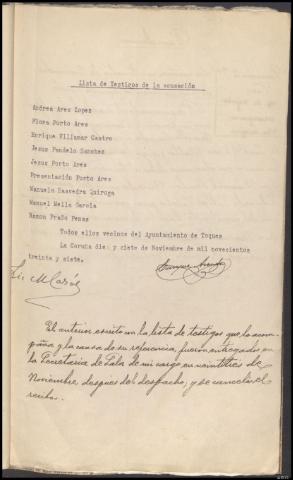 Lista de Testigos de la acusación
Andrea Ares Lopez
Flora Porto Ares
Enrique Villamar Castro
Jesus Pendelo Sanchez
Jesus Porto Ares
Presentación Porto Ares
Manuela Saavedra Quiroga
Manuel Mella Garcia
Ramon Prado Penas
Todos ellos vecinos del Ayuntamiento de Toques
La Coruña diez y siete de Noviembre de mil novecientos
treinta y siete.
El anterior escrito con la lista de testigos que lo acom-
paña y la causa de su referencia, fueron entregados en
la Secretaria de Sala de mi cargo en veintitres de
Noviembre, despues del despacho, y se cancela el
recibo.